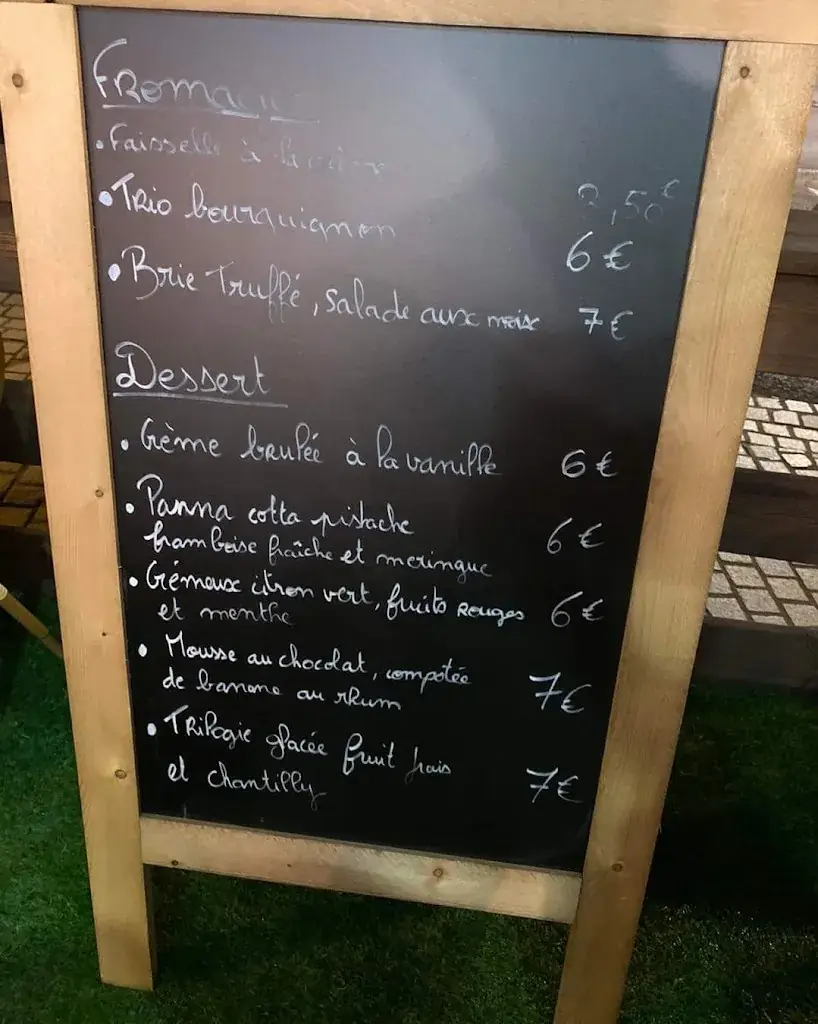 Fromag
• Faisselle à la
,50€
• Trio bourguignon
6€
• Brie Truffé, salade aux noix
7€
Dessert
• Crème brulée à la vanille 6€
• Panna cotta pistache
framboise fraîche et meringue 6€
• Crémeux citron vert, fruits rouges
et menthe 6€
• Mousse au chocolat, compotée
de banane au rhum 7€
• Trilogie glacée fruit frais
et chantilly 7€